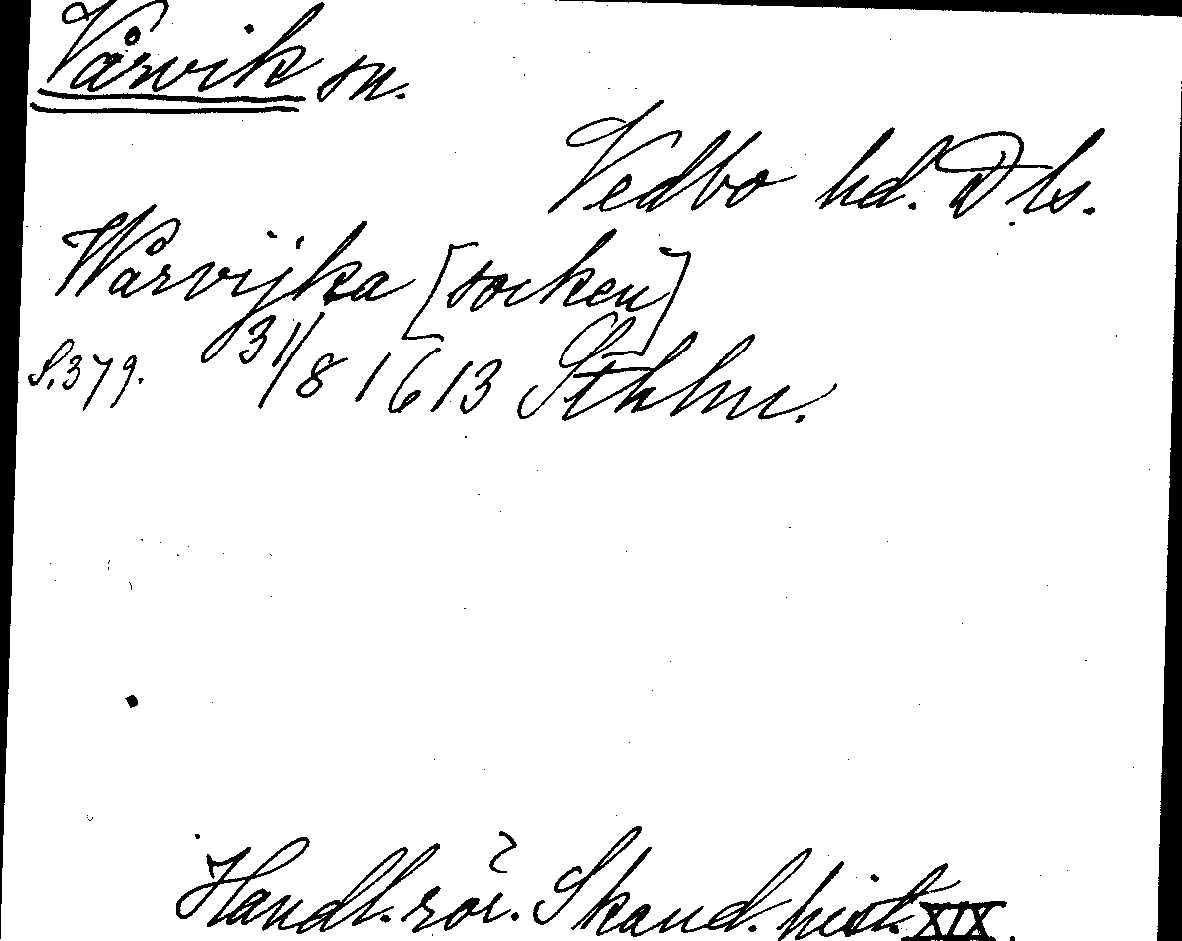 Vårvik sn.
Vedbo hd. Dls.
Wårvijka [socken]
S. 379. 31/8 1613 Sthlm.
Handl. rör. Skand. hist. XIX.